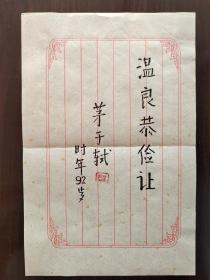 温良恭俭让
茅于轼
时年92岁